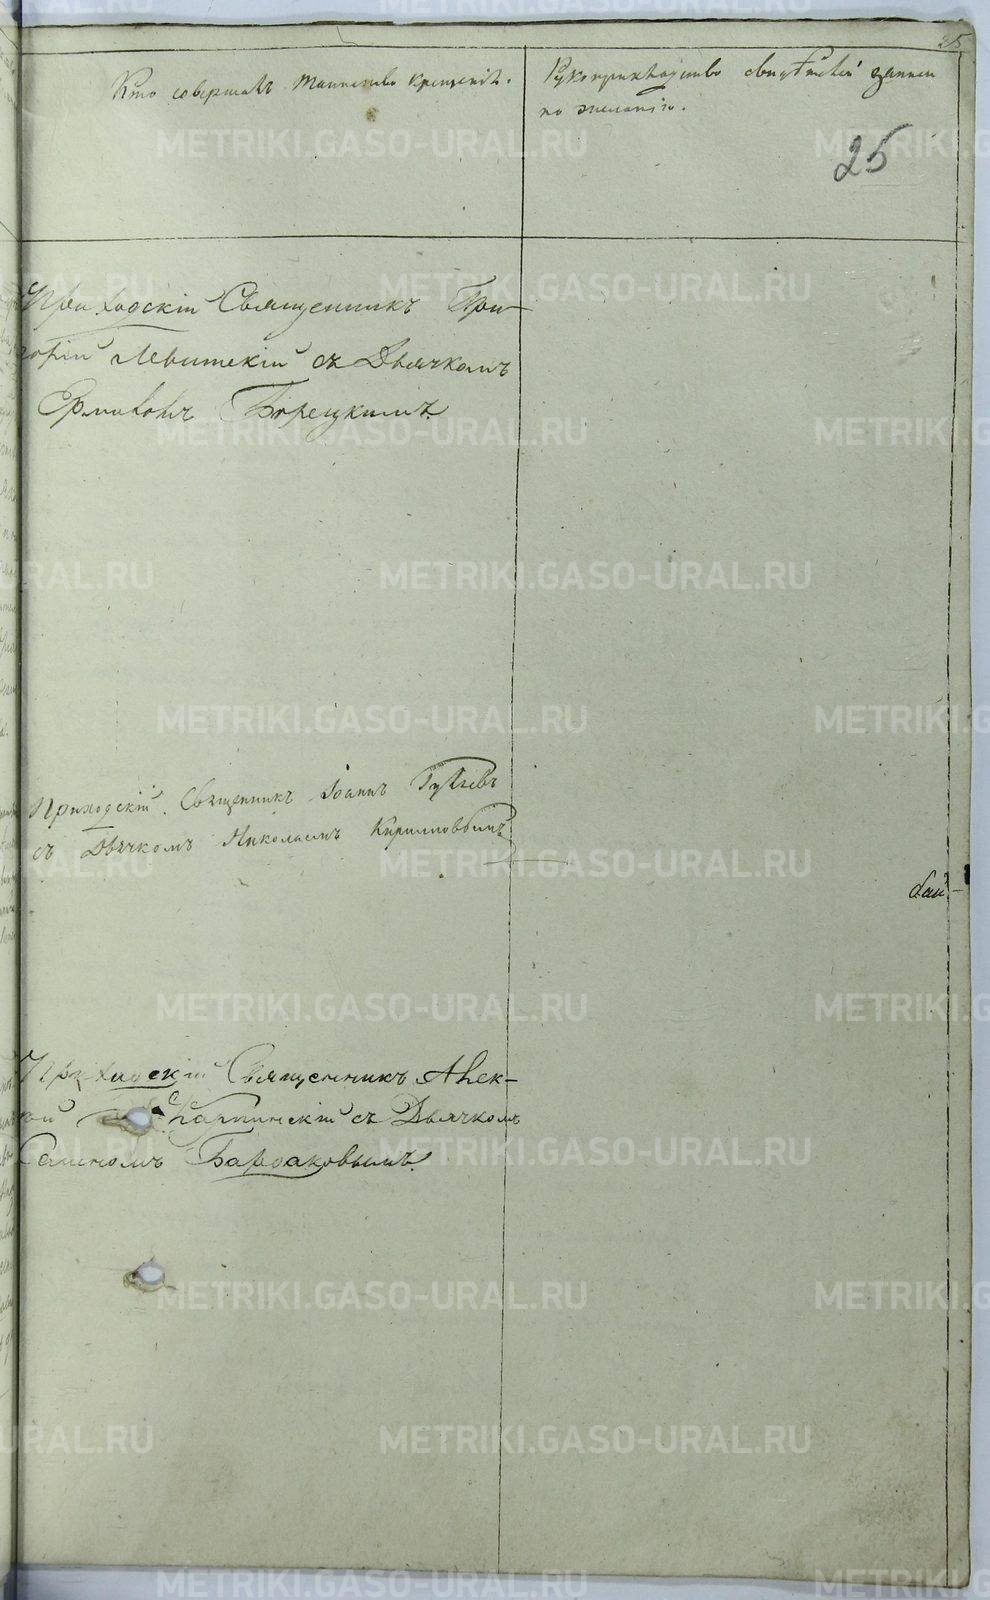 25
Кто совершалъ таинство крещенія.
Рукоприкладство свидѣтелей записи
по желанію.
25
Приходскій Священникъ Гри-
горій Левитскій съ Дьячкомъ
Борецкимъ
Приходскій Священникъ Іоаннъ
съ Дьячкомъ Николаемъ Кирилловымъ
Приходскій Священникъ Алек-
Карпинскій съ Дьячкомъ
Семеномъ
METRIKI.GASO-URAL.RU